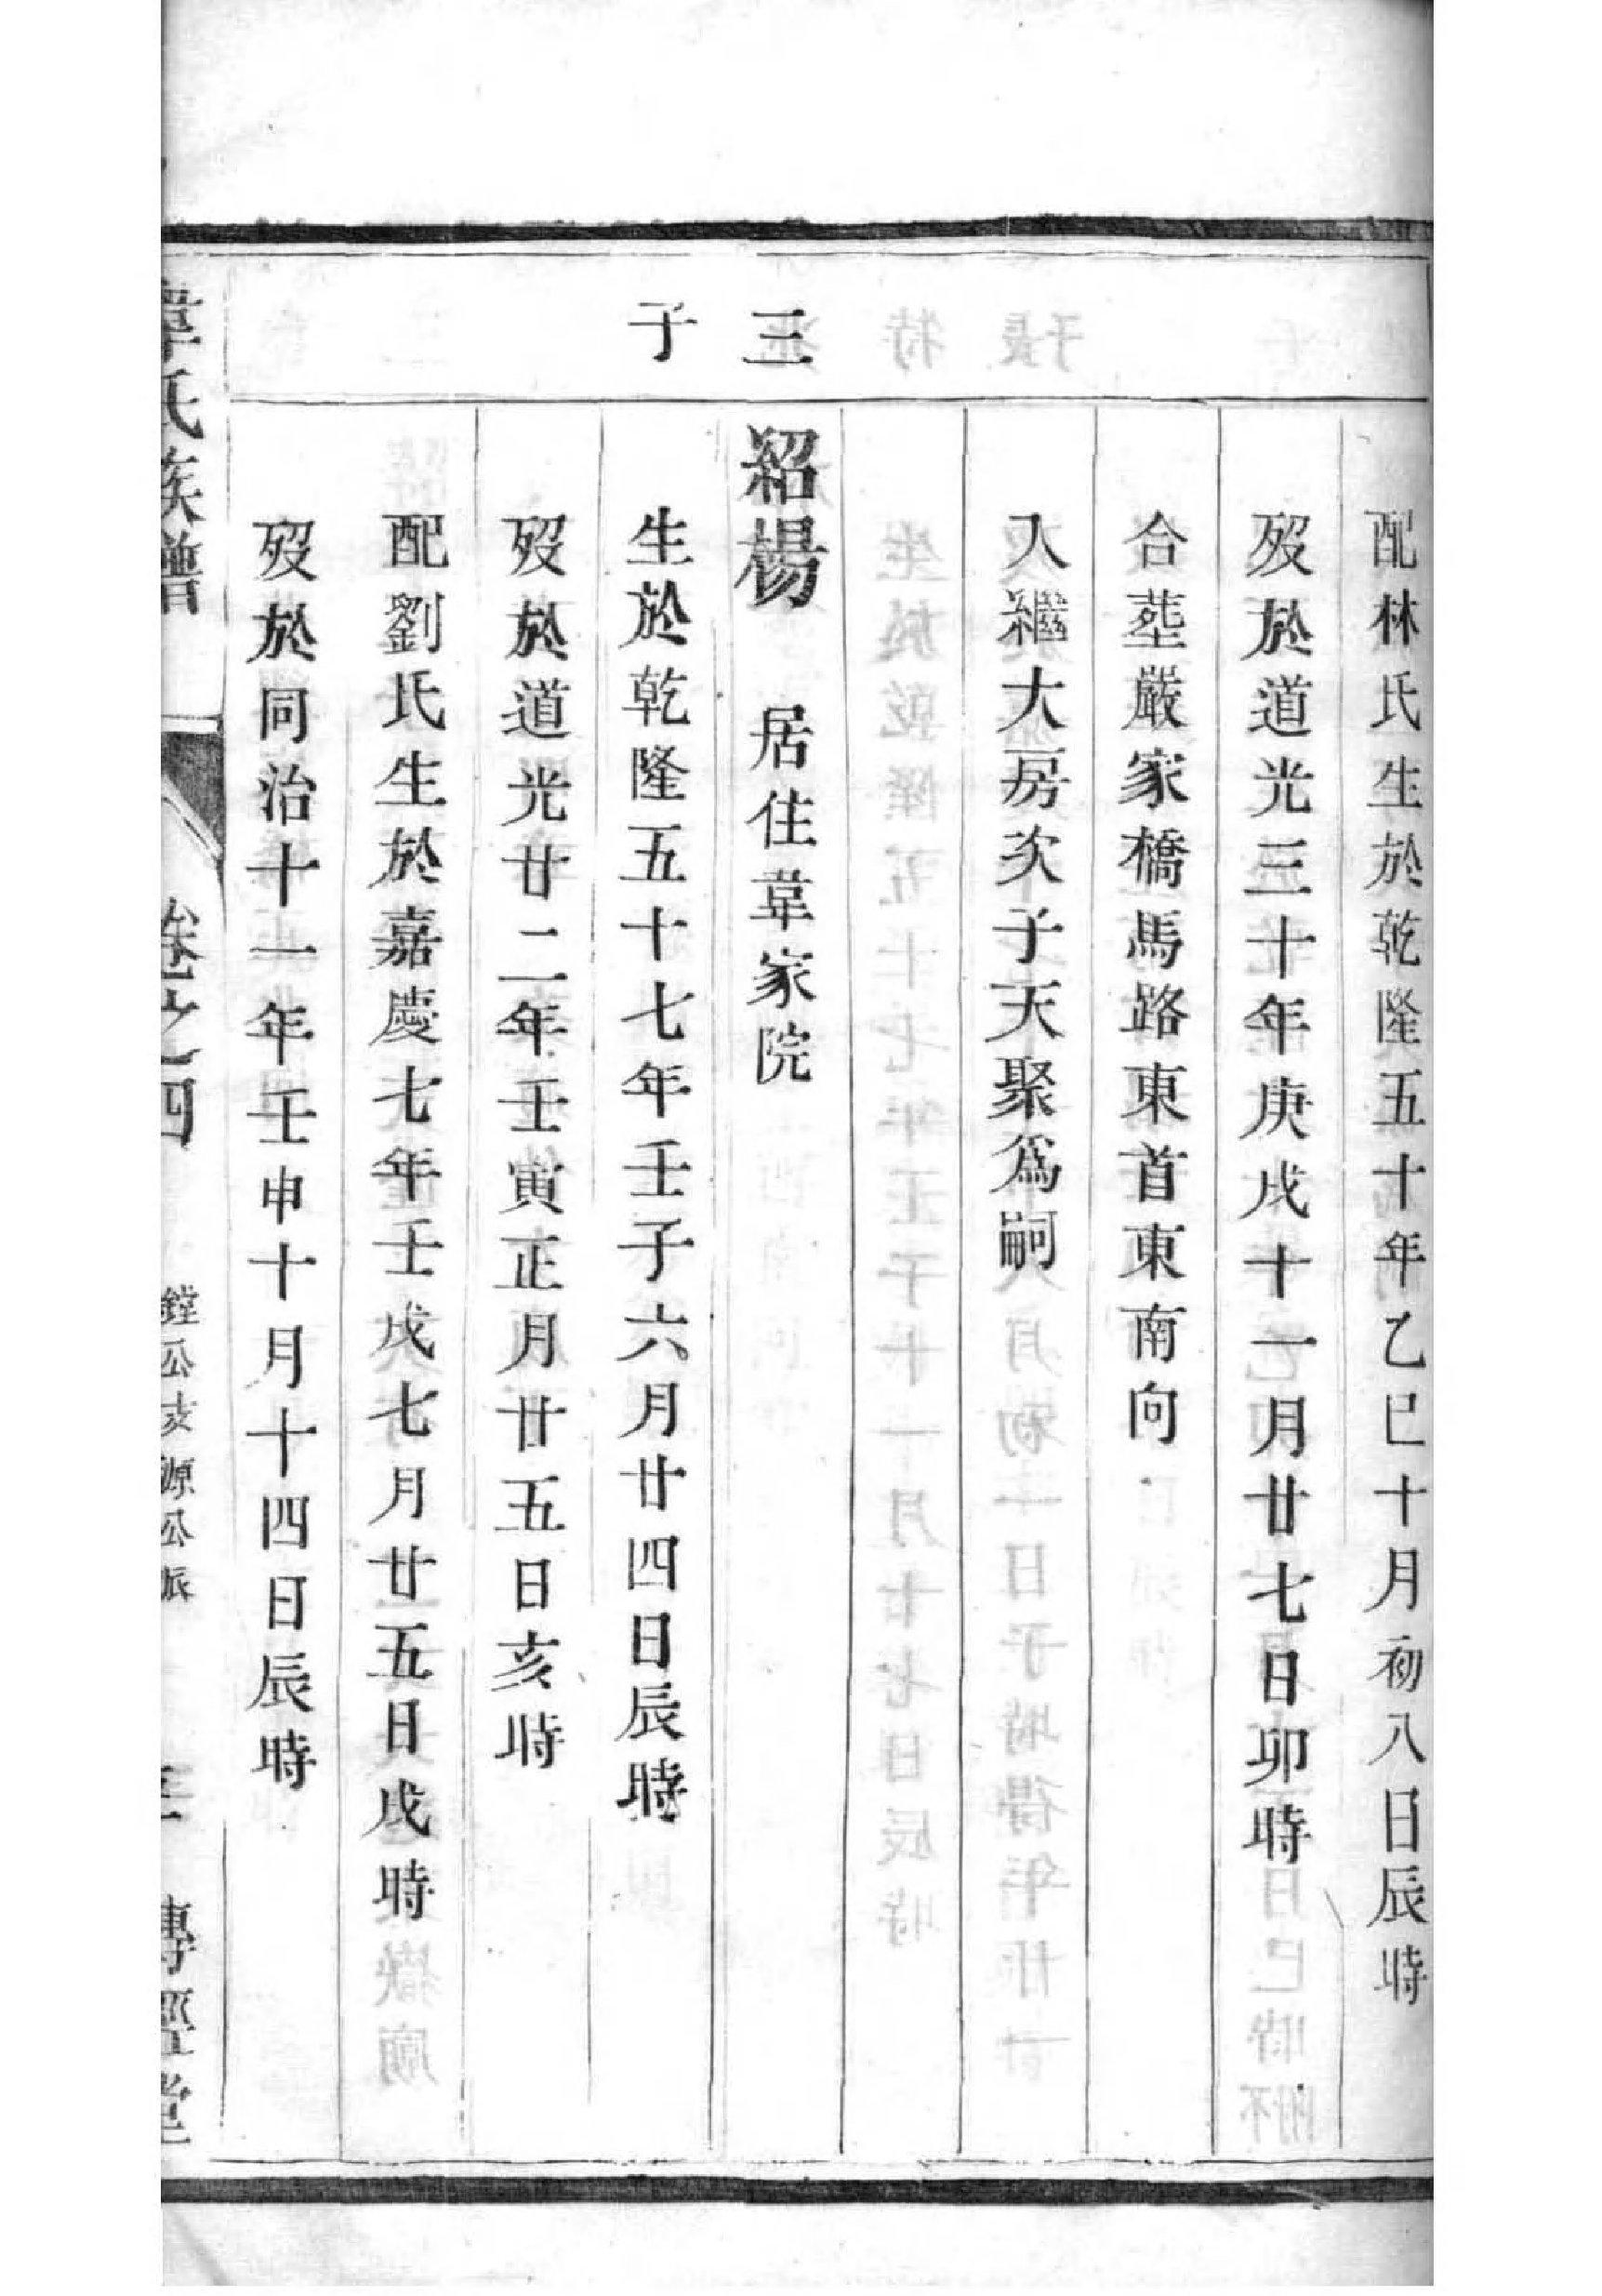 配林氏生於乾隆五十年乙巳十月初八日辰時
歿於道光三十年庚戌十一月廿七日卯時
合塟嚴家橋馬路東首東南向
入繼大房次子天聚爲嗣
三子
紹楊 居住韋家院
生於乾隆五十七年壬子六月廿四日辰時
歿於道光廿二年壬寅正月廿五日亥時
配劉氏生於嘉慶七年壬戌七月廿五日戌時
歿於同治十一年壬申十月十四日辰時
韋氏族譜 卷之四 鏜公支源公派 傳經堂